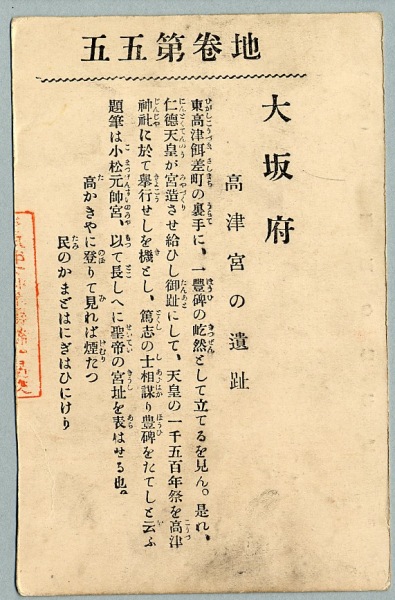 地卷第五五
大坂府
高津宮の遺趾
東高津餌差町の裏手に、一豐碑の屹然として立てるを見ん。是れ、
仁德天皇が宮造させ給ひし御趾にして、天皇の一千五百年祭を高津
神社に於て擧行せしを機とし、篤志の士相謀り豐碑をたてしと云ふ
題筆は小松元帥宮、以て長しへに聖帝の宮址を表はせる也。
高かきやに登りて見れば煙たつ
民のかまどはにぎはひにけり